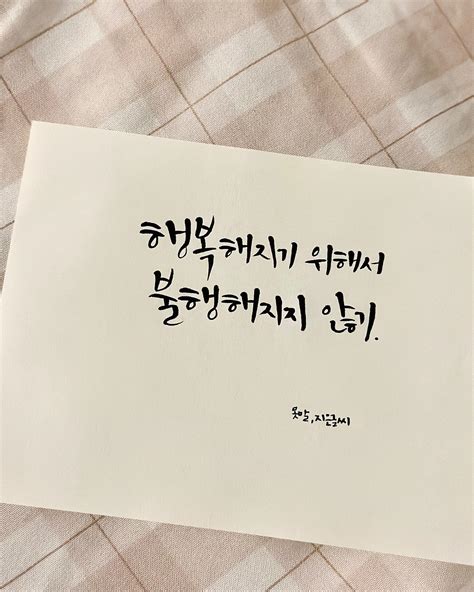 행복해지기 위해서
불행해지지 않기.
못말, 지은글씨